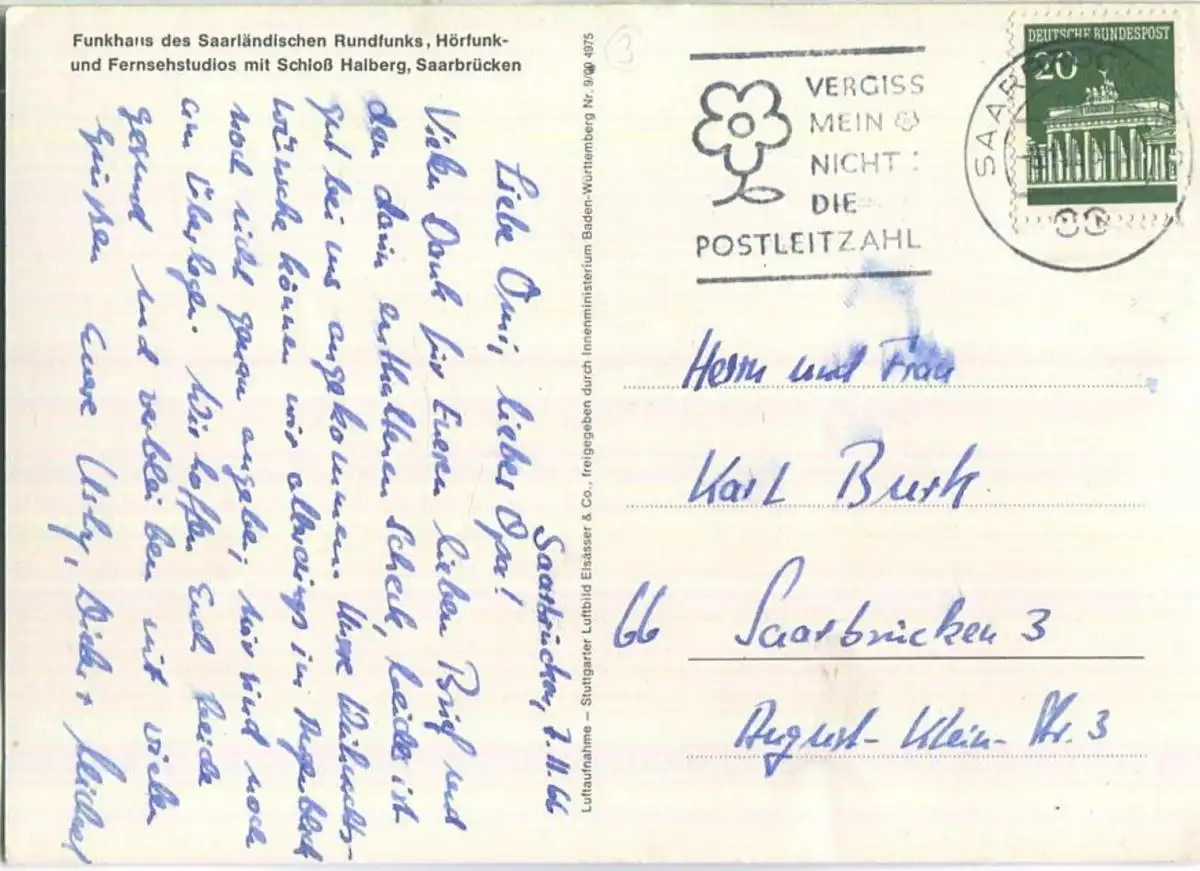 Funkhaus des Saarländischen Rundfunks, Hörfunk-
und Fernsehstudios mit Schloß Halberg, Saarbrücken
Saarbrücken, 7.11.66
Liebe Omi, lieber Opa!
Vielen Dank für Eueren lieben Brief und
den darin enthaltenen Scheck, beides ist
gut bei uns angekommen. Unsere Weihnachts-
wünsche können wir allerdings im Augenblick
noch nicht genau angeben, wir sind noch
am Überlegen. Wir hoffen Euch beide
gesund und verbleiben mit vielen
Grüßen Euere Uschy, Dieter, Michael
Luftaufnahme – Stuttgarter Luftbild Elsässer & Co., freigegeben durch Innenministerium Baden-Württemberg Nr. 9/00 4975
3
VERGISS
MEIN
NICHT:
DIE
POSTLEITZAHL
DEUTSCHE BUNDESPOST
20
SAARBRÜCKEN
66
Herrn und Frau
Karl Burk
66 Saarbrücken 3
August-Klein-Str. 3